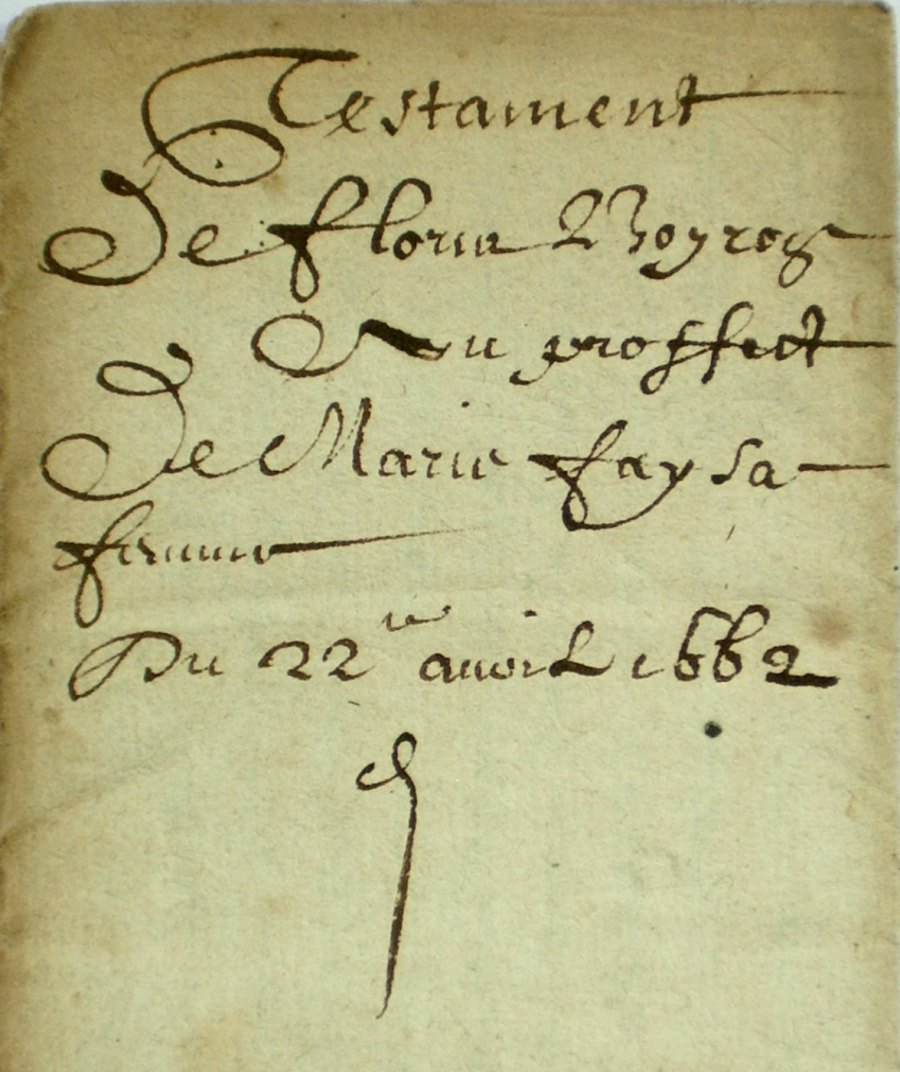 Testament
De florin Boyrog
Au proffict
De Marie fay sa
femme
Du 22me auvril 1662